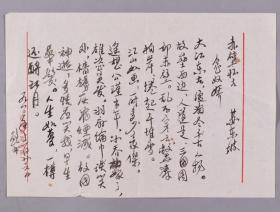 赤壁怀古 苏东坡
念奴娇
大江东去，浪淘尽，千古人物。
故垒西边，人道是，三国周
郎赤壁。乱石穿空，惊涛
拍岸，卷起千堆雪。
江山如画，一时多少豪杰。
遥想公瑾当年，小乔初嫁了，
雄姿英发。羽扇纶巾，谈笑
间，樯橹灰飞烟灭。故国
神游，多情应笑我，早生
华发。人生如梦，一樽
还酹江月。